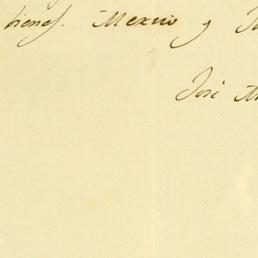 bienes. Mexico y
José